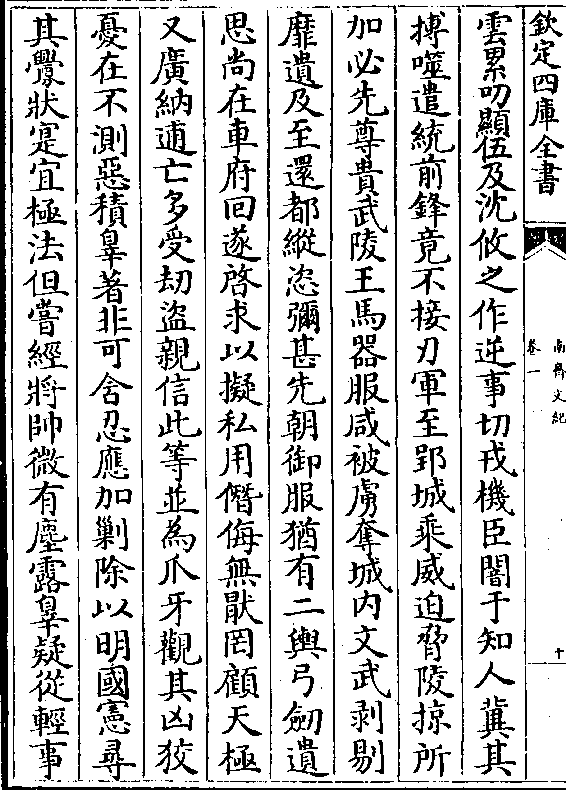 欽定四庫全書
南齊文紀
卷一
十
雲累叨顯伍及沈攸之作逆事切戎機臣闇于知人冀其
搏噬遣統前鋒竟不接刃軍至郢城乘威迫脅陵掠所
加必先尊貴武陵王馬器服咸被虜奪城内文武剥剔
靡遺及至還都縱恣彌甚先朝御服猶有二輿弓劒遺
思尚在車府回遂啓求以擬私用僭侮無厭罔顧天極
又廣納逋亡多受劫盜親信此等並為爪牙觀其凶狡
憂在不測惡積辠著非可含忍應加剿除以明國憲尋
其釁狀寔宜極法但嘗經將帥微有塵露辠疑從輕事